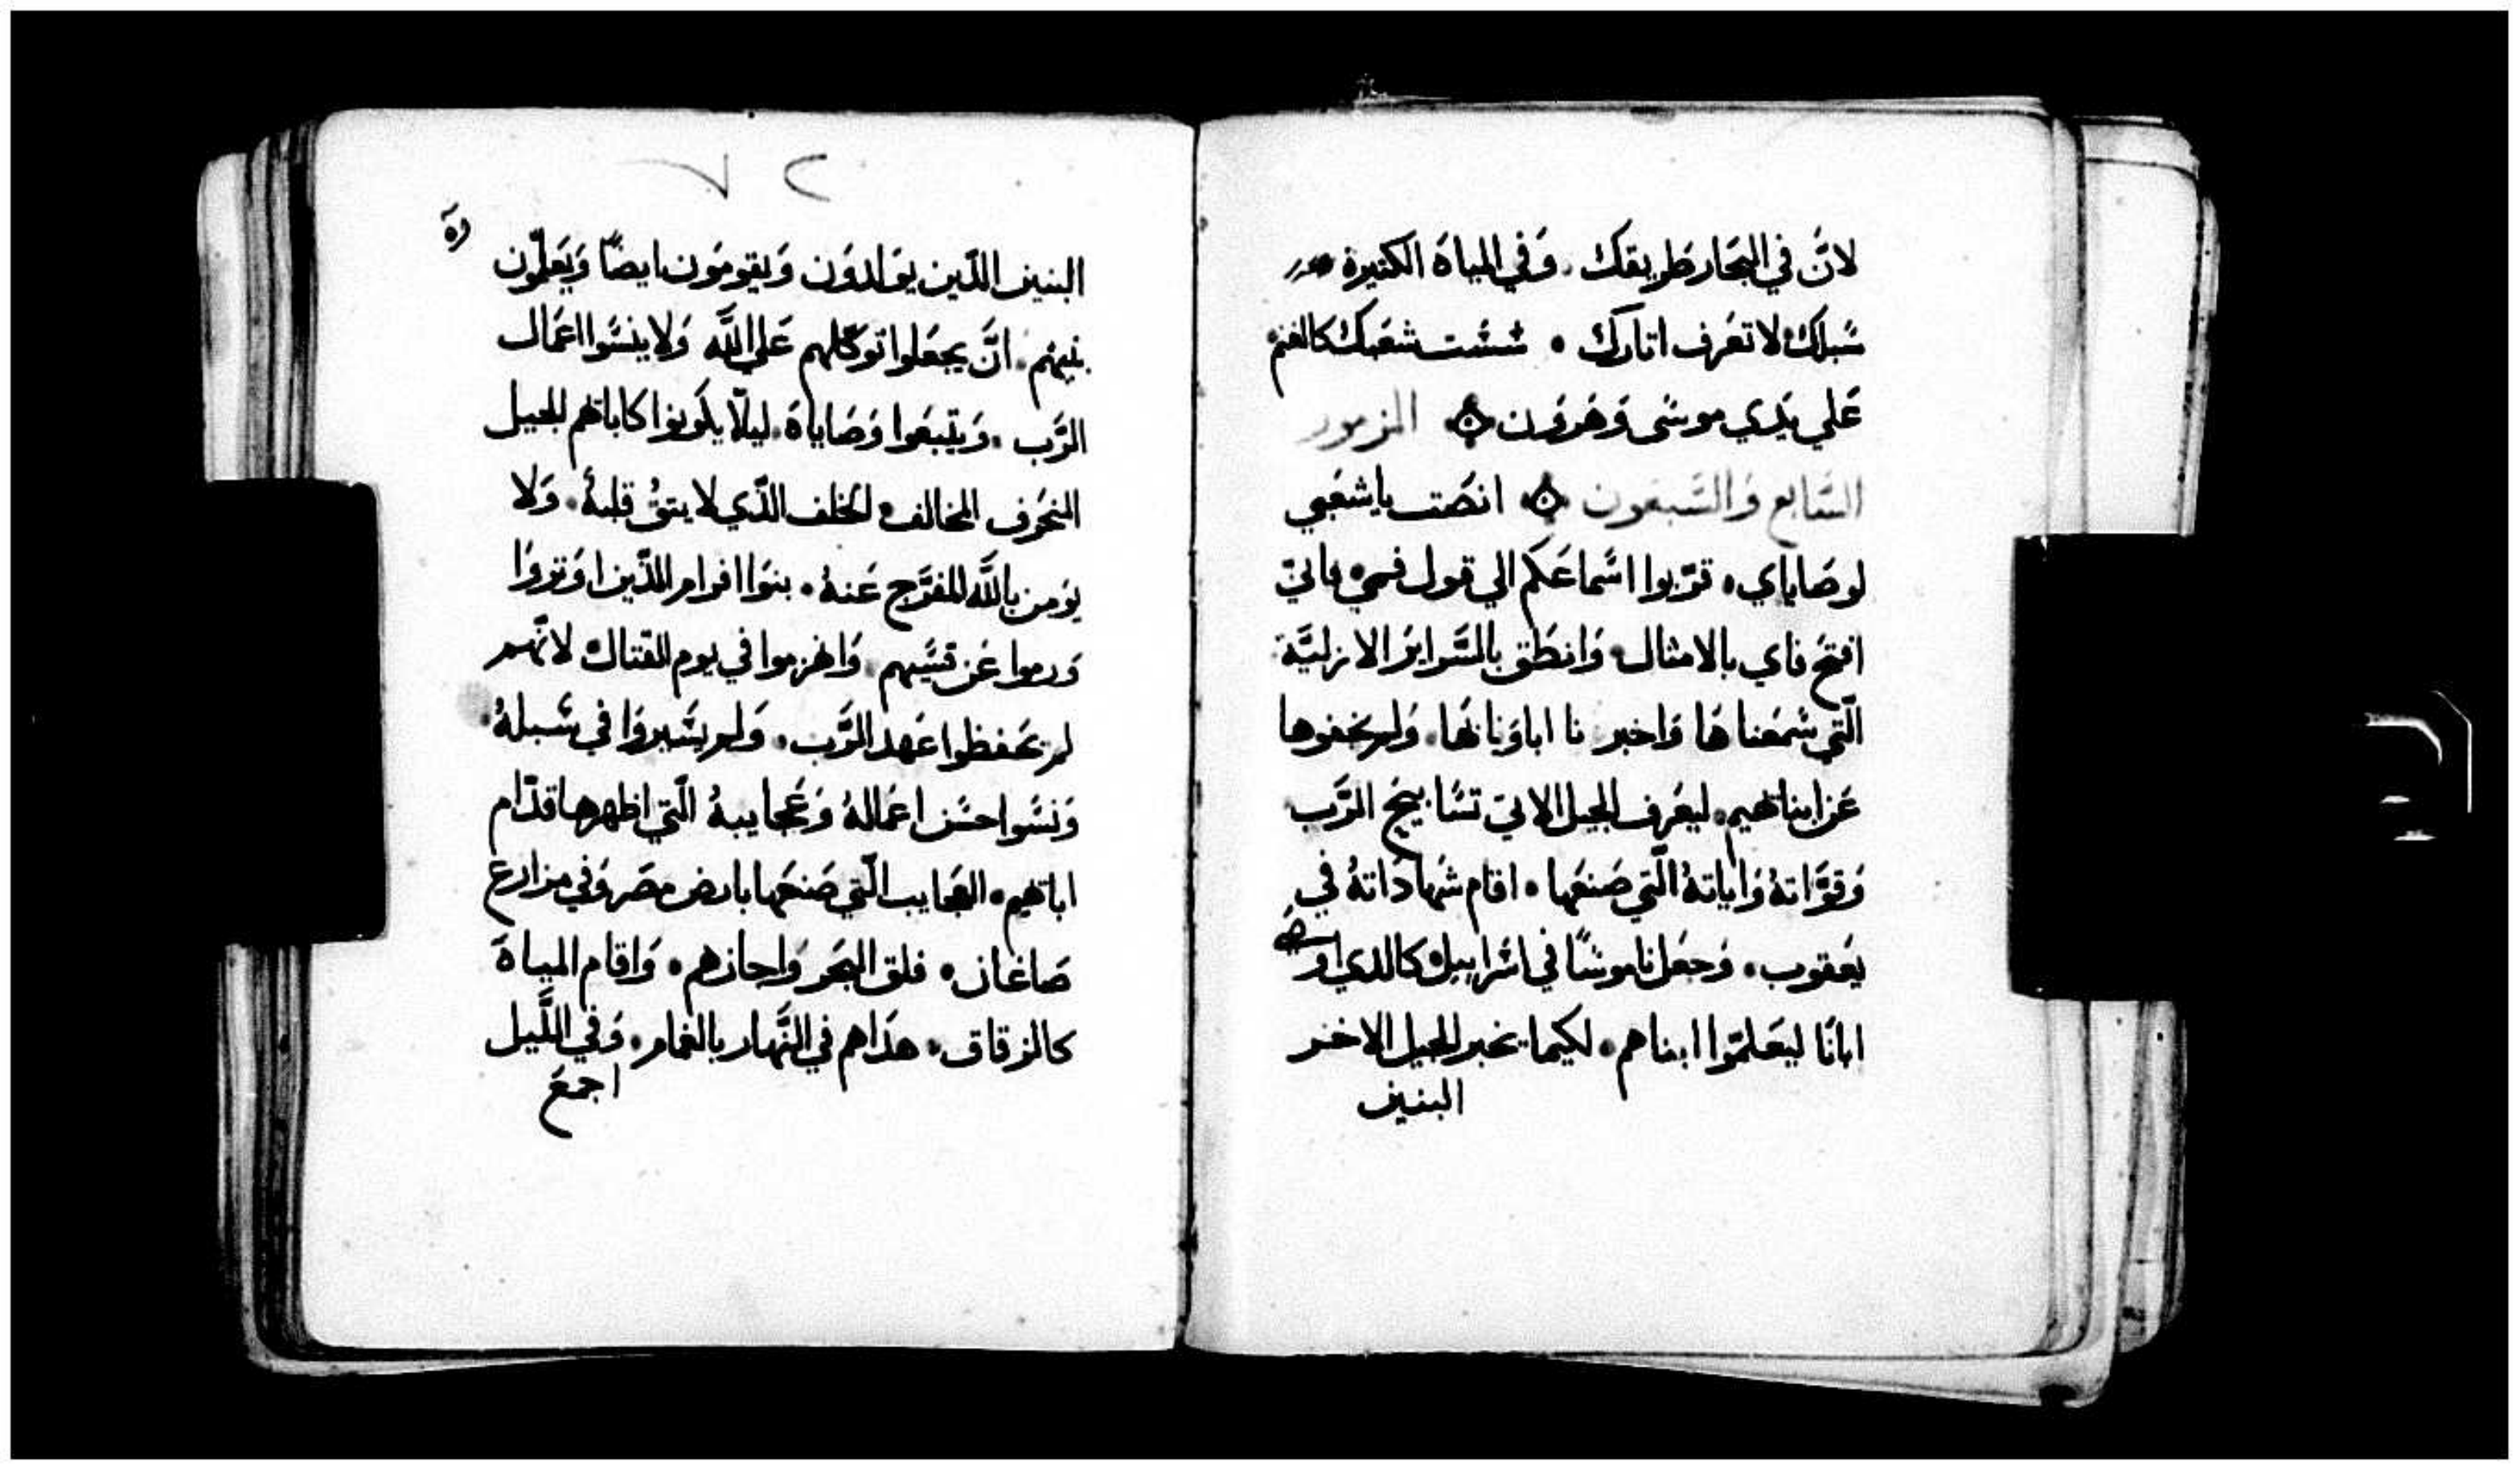 لانَّ في البحَار طَريقك. وَفي المياهَ الكثيرة
سُبلك لا تعَرف اتارك • سُسْت شعَبك كالغنم
عَلي يَدي موسَى وَهَرَوَن ۞ المزمور
السَّابع وَالسَّبعَون ۞ انصَت ياشعَبي
لوصَاياي • قرّبوا اسَماعَكم الي قول فمي فانيّ
افتحَ فاي بالامثال وَانطَق بالسَّرايرَ الازليَّة
الّتي سَمعَناهَا وَاخبرنا اباوَنا بَها. وَلم يخفوها
عَن ابناتهيم. ليعَرف الجيل الاتيّ تسَابيحَ الرَّب
وَقوَّاتهُ وَاياتهُ الّتي صَنعَها • اقام شَهادَاتهُ في
يعَقوب. وَجعَل ناموسًا في اسَراييل كالدي اوصَي
ابانَا ليعَلمّوا ابناهم. لكيما يخبر الجيل الاخر
البنين
٧٢
البنين اللّذين يوَلدوَن وَيقومَون ايضًا وَيَعَلّمون
بنيهم. انَّ يجعَلوا توَكّلهم عَلي اللَّه وَلا ينسَوا اعمَال
الرَّب. وَيتبعَوا وَصَاياهَ. ليلّا يكَونوا كاباتهم الجيل
النحَرف المخالف الخلف الذّي لا يتقُ قلبهُ. وَلا
يوَمن باللَّه المفرَّج عَنهُ. بنوَا افرام اللّذين اوَتروَا
وَرموا عَن قسَيهم. وَانهزموا في يوم القتال لانَّهم
لم يحَفظوا عَهد الرَّب. وَلم يسَيروَا في سَبلهُ.
وَنسَوا حسَن اعَمالهُ وَعَجايبهُ الّتي اظهرها قدّام
اباتهيم. العَجايب الّتي صَنعَها بارض مصَر وَفي مزارع
صَاغان. فلق البحَر وَاجازهم. وَاقام المياهَ
كالزقاق. هدَاهم في النَّهار بالغمام. وَفي اللَّيل
اجمعَ